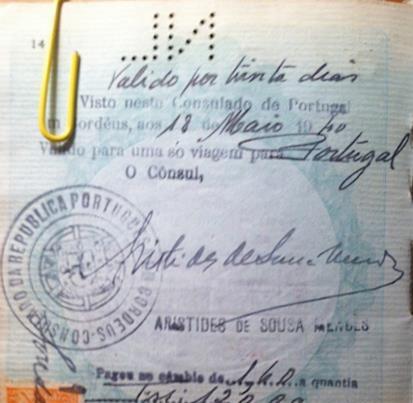 14
Valido por trinta dias
Visto neste Consulado de Portugal
em Bordéus, aos 18 de Maio 1940
Valido para uma só viagem para Portugal
O Cônsul,
Aristides de Sousa Mendes
CONSULADO DA REPUBLICA PORTUGUESA
BORDEUS
ARISTIDES DE SOUSA MENDES
Pagou ao câmbio de a quantia